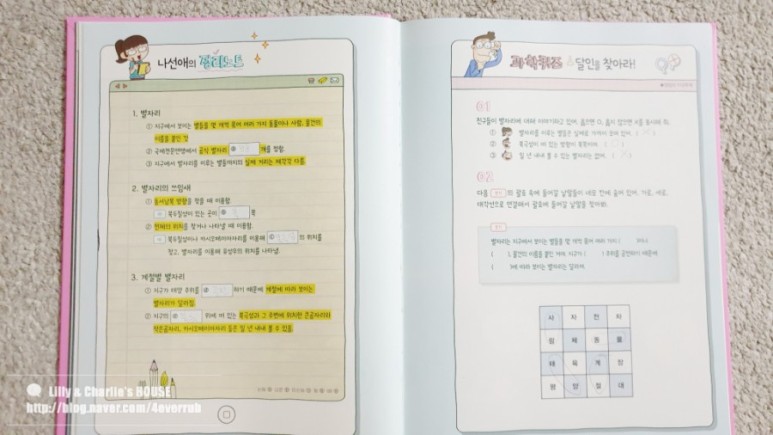 나선애의 정리노트
1. 별자리
① 지구에서 보이는 별들을 몇 개씩 묶어 여러 가지 동물이나 사람, 물건의
이름을 붙인 것
② 국제천문연맹에서 공식 별자리 개를 정함.
③ 지구에서 별자리를 이루는 별들까지의 실제 거리는 제각각 다름.
2. 별자리의 쓰임새
① 동서남북 방향을 찾을 때 이용함.
북두칠성이 있는 곳이 쪽
② 천체의 위치를 찾거나 나타낼 때 이용함.
북두칠성이나 카시오페이아자리를 이용해 의 위치를
찾고, 별자리를 이용해 유성우의 위치를 나타냄.
3. 계절별 별자리
① 지구가 태양 주위를 하기 때문에 계절에 따라 보이는
별자리가 달라짐.
② 지구의 위에 떠 있는 북극성과 그 주변에 위치한 큰곰자리와
작은곰자리, 카시오페이아자리 등은 일 년 내내 볼 수 있음.
과학퀴즈 달인을 찾아라!
01
친구들이 별자리에 대해 이야기하고 있어. 옳으면 O, 옳지 않으면 X를 표시해 줘.
① 별자리를 이루는 별들은 실제로 가까이 모여 있어. ( )
② 북극성이 떠 있는 방향이 북쪽이야. ( )
③ 일 년 내내 볼 수 있는 별자리는 없어. ( )
02
다음 의 괄호 속에 들어갈 낱말들이 네모 칸에 숨어 있어. 가로, 세로,
대각선으로 연결해서 괄호에 들어갈 낱말을 찾아봐.
별자리는 지구에서 보이는 별들을 몇 개씩 묶어 여러 가지 ( )이나
( ), 물건의 이름을 붙인 거야. 지구가 ( ) 주위를 공전하기 때문에
( )에 따라 보이는 별자리는 달라져.
사 자 전 자
람 체 동 물
태 북 계 장
평 양 절 대
Lilly & Charlie's HOUSE
http://blog.naver.com/4overrub